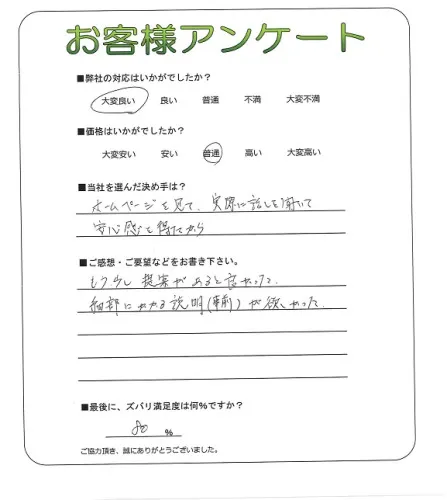 お客様アンケート
■弊社の対応はいかがでしたか？
大変良い 良い 普通 不満 大変不満
■価格はいかがでしたか？
大変安い 安い 普通 高い 大変高い
■当社を選んだ決め手は？
ホームページを見て、実際に話しを聞いて
安心感を得たから
■ご感想・ご要望などをお書き下さい。
もう少し提案があると良かった、
細部にわたる説明(事前)が欲しかった。
■最後に、ズバリ満足度は何%ですか？
80 %
ご協力頂き、誠にありがとうございました。